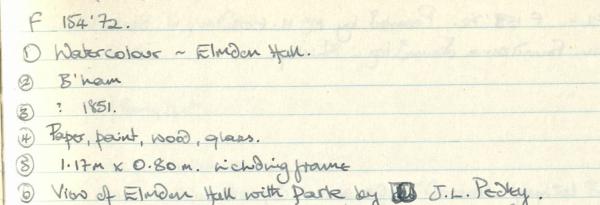 F 154'72.
① Watercolour ~ Elmdon Hall.
② B'ham
③ ? 1851.
④ Paper, paint, wood, glass.
⑤ 1.17m x 0.80m. including frame
⑥ View of Elmdon Hall with park by J.L. Pedley.